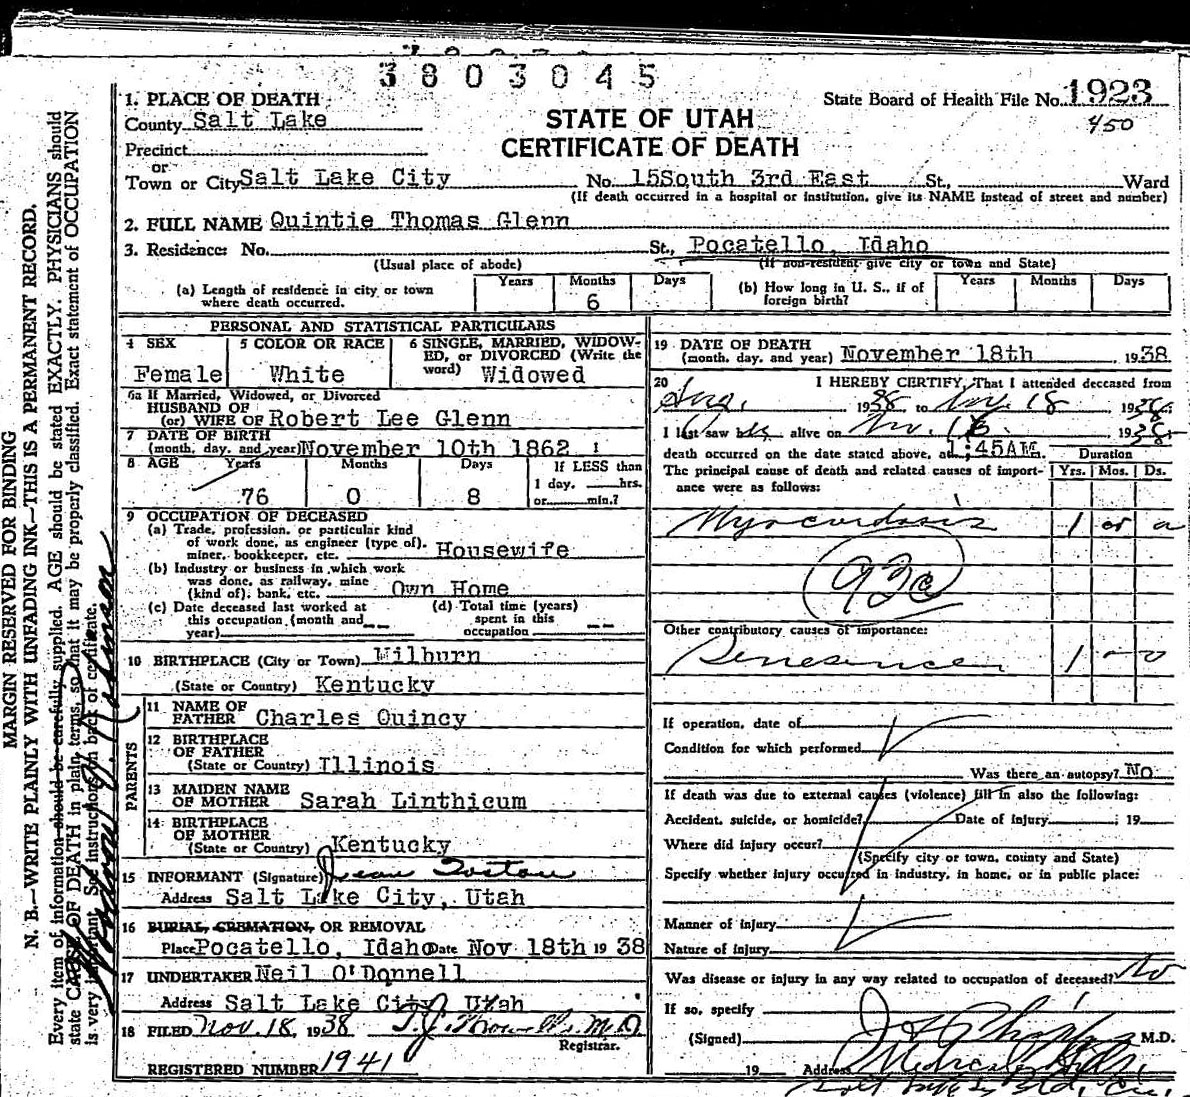 3803045
State Board of Health File No. 1923
450
STATE OF UTAH
CERTIFICATE OF DEATH
1. PLACE OF DEATH
County Salt Lake
Precinct
or
Town or City Salt Lake City No. 15South 3rd East St., Ward
(If death occurred in a hospital or institution, give its NAME instead of street and number)
2. FULL NAME Quintie Thomas Glenn
3. Residence: No. St., Pocatello, Idaho
(Usual place of abode) (If non-resident give city or town and State)
(a) Length of residence in city or town where death occurred. Years Months 6 Days
(b) How long in U. S., if of foreign birth? Years Months Days
PERSONAL AND STATISTICAL PARTICULARS
4 SEX Female
5 COLOR OR RACE White
6 SINGLE, MARRIED, WIDOWED, or DIVORCED (Write the word) Widowed
6a If Married, Widowed, or Divorced
HUSBAND OF
(or) WIFE OF Robert Lee Glenn
7 DATE OF BIRTH
(month, day, and year) November 10th 1862
8 AGE Years 76 Months 0 Days 8
If LESS than
1 day, hrs.
or min.?
9 OCCUPATION OF DECEASED
(a) Trade, profession, or particular kind
of work done, as engineer (type of),
miner, bookkeeper, etc. Housewife
(b) Industry or business in which work
was done, as railway, mine
(kind of), bank, etc. Own Home
(c) Date deceased last worked at
this occupation (month and
year) --
(d) Total time (years)
spent in this
occupation --
10 BIRTHPLACE (City or Town) Milburn
(State or Country) Kentucky
PARENTS
11 NAME OF
FATHER Charles Quincy
12 BIRTHPLACE
OF FATHER
(State or Country) Illinois
13 MAIDEN NAME
OF MOTHER Sarah Linthicum
14 BIRTHPLACE
OF MOTHER
(State or Country) Kentucky
15 INFORMANT (Signature) Jean
Address Salt Lake City, Utah
16 BURIAL, CREMATION, OR REMOVAL
Place Pocatello, Idaho Date Nov 18th 1938
17 UNDERTAKER Neil O'Donnell
Address Salt Lake City, Utah
18 FILED Nov. 18, 1938 M.D.
Registrar.
REGISTERED NUMBER 1941
19 DATE OF DEATH
(month, day, and year) November 18th 1938
20 I HEREBY CERTIFY, That I attended deceased from
Aug. 1938 to Nov. 18 1938
I last saw her alive on Nov. 1938
death occurred on the date stated above, at :45AM.
Duration
The principal cause of death and related causes of importance were as follows: Yrs. Mos. Ds.
Myocardosis 1
93c
Other contributory causes of importance:
Senescence 1
If operation, date of
Condition for which performed
Was there an autopsy? No
If death was due to external causes (violence) fill in also the following:
Accident, suicide, or homicide? Date of injury 19
Where did injury occur?
(Specify city or town, county and State)
Specify whether injury occurred in industry, in home, or in public place:
Manner of injury
Nature of injury
Was disease or injury in any way related to occupation of deceased? No
If so, specify
(Signed) M.D.
19 Address Medical
MARGIN RESERVED FOR BINDING
N. B.—WRITE PLAINLY WITH UNFADING INK—THIS IS A PERMANENT RECORD.
Every item of information should be carefully supplied. AGE should be stated EXACTLY. PHYSICIANS should
state CAUSE OF DEATH in plain terms, so that it may be properly classified. Exact statement of OCCUPATION
is very important. See instructions on back of certificate.